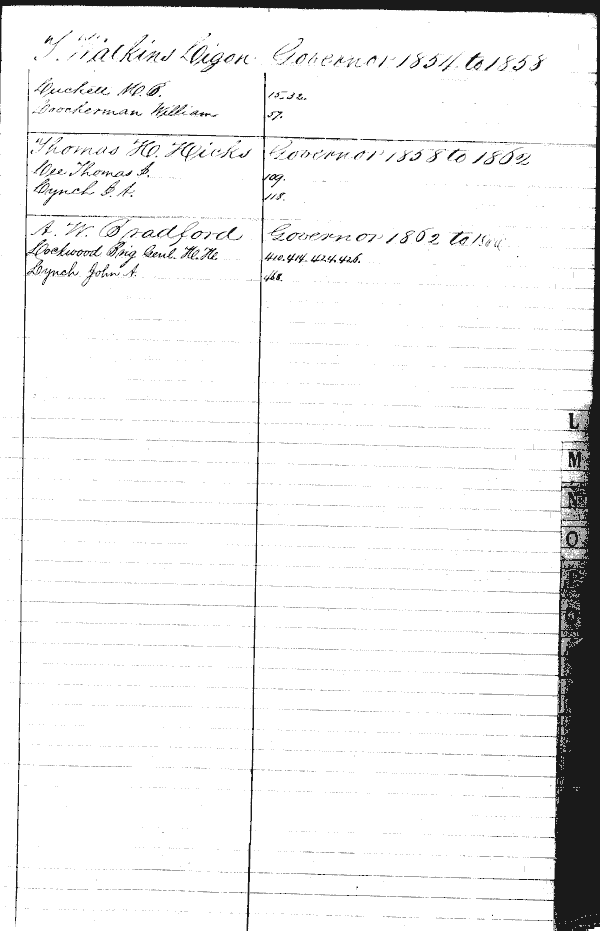 T. Watkins Ligon Governor 1854 to 1858
Luchell 15-32.
Loockerman William 57.
Thomas H. Hicks Governor 1858 to 1862
Lee Thomas J. 109.
Lynch J. A. 118.
A. W. Bradford Governor 1862 to
Lockwood Brig Genl. H. H. 410. 414. 424. 426.
Lynch John A. 468.
L
M
N
O